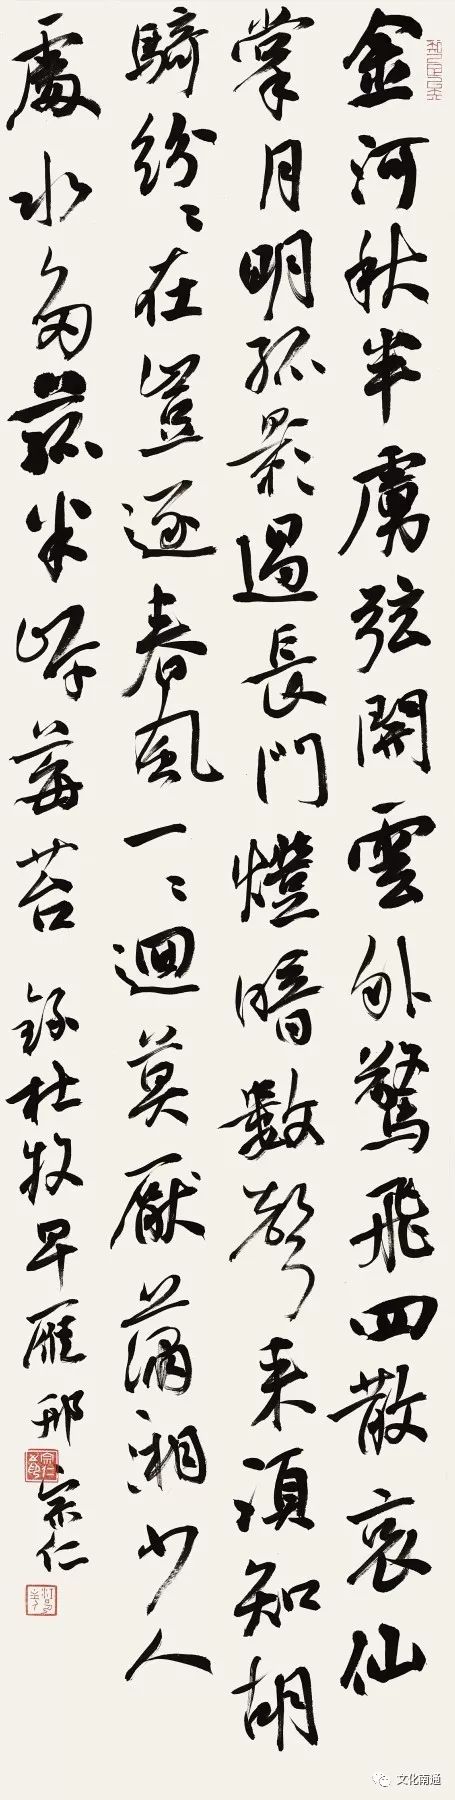 金河秋半虜弦開雲外驚飛四散哀仙
掌月明孤影過長門燈暗數聲来須知胡
騎紛〻在豈逐春風一〻迴莫厭蕭湘少人
處水多菰米岸莓苔 錄杜牧早雁 邢宗仁
文化南通